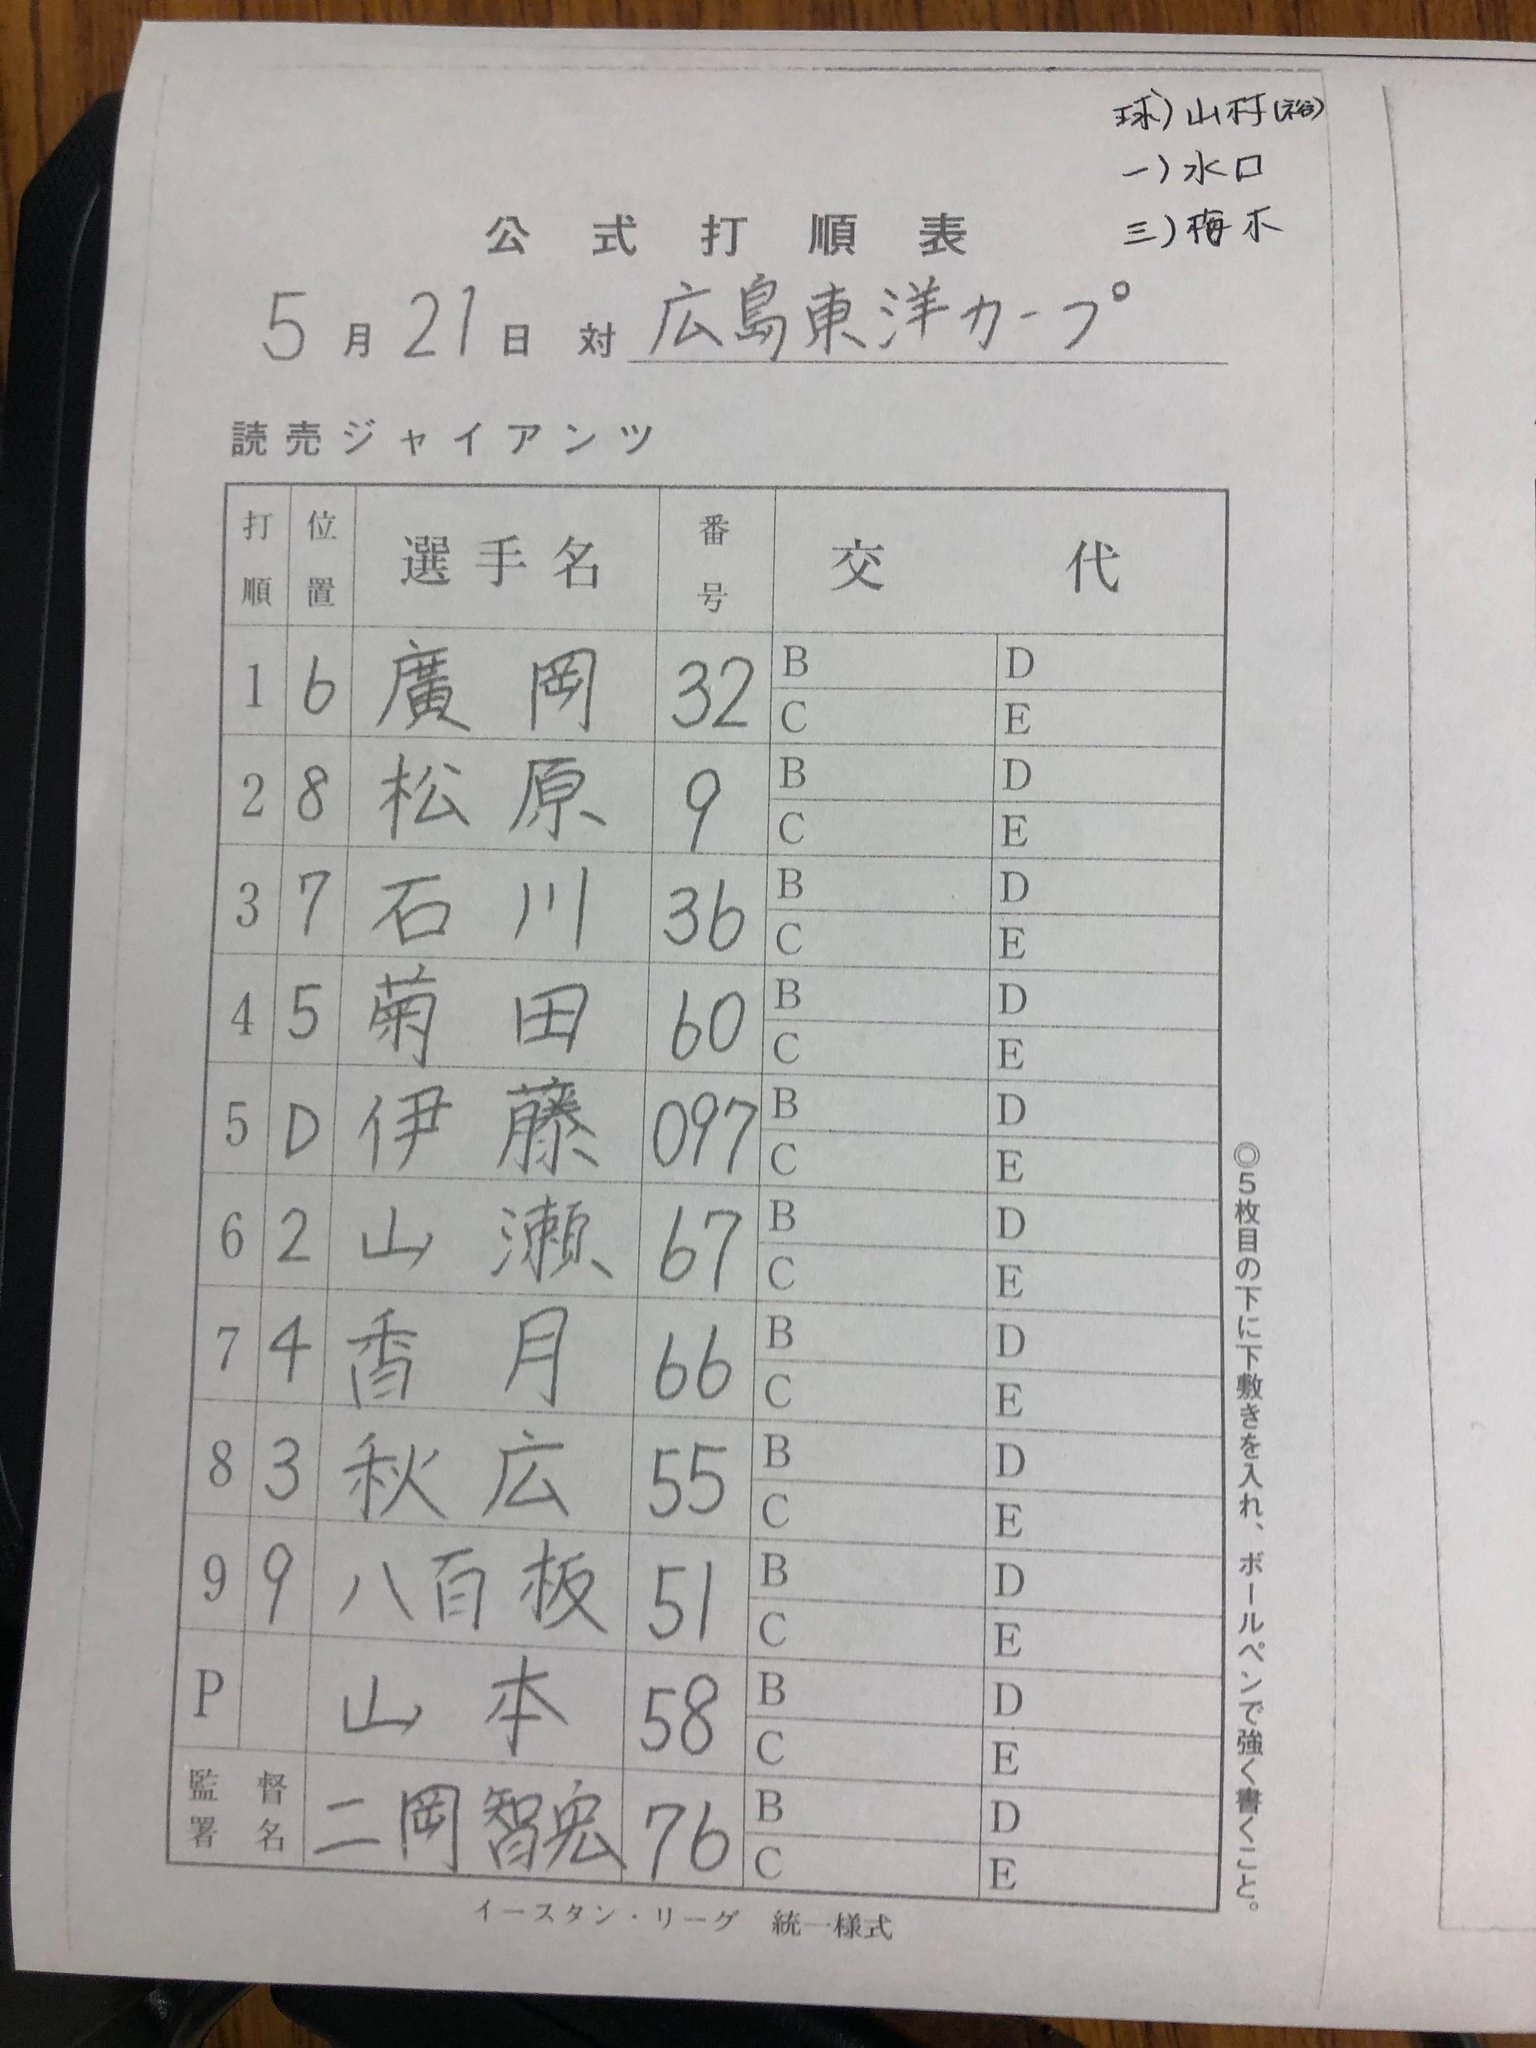 球)山村(裕)
一)水口
三)梅木
公式打順表
5月21日 対 広島東洋カープ
読売ジャイアンツ
打順 位置 選手名 番号 交代
1 6 廣岡 32 B D
C E
2 8 松原 9 B D
C E
3 7 石川 36 B D
C E
4 5 菊田 60 B D
C E
5 D 伊藤 097 B D
C E
6 2 山瀬 67 B D
C E
7 4 香月 66 B D
C E
8 3 秋広 55 B D
C E
9 9 八百板 51 B D
C E
P 山本 58 B D
C E
監督署名 二岡智宏 76 B D
C E
◎5枚目の下に下敷きを入れ、ボールペンで強く書くこと。
イースタン・リーグ 統一様式